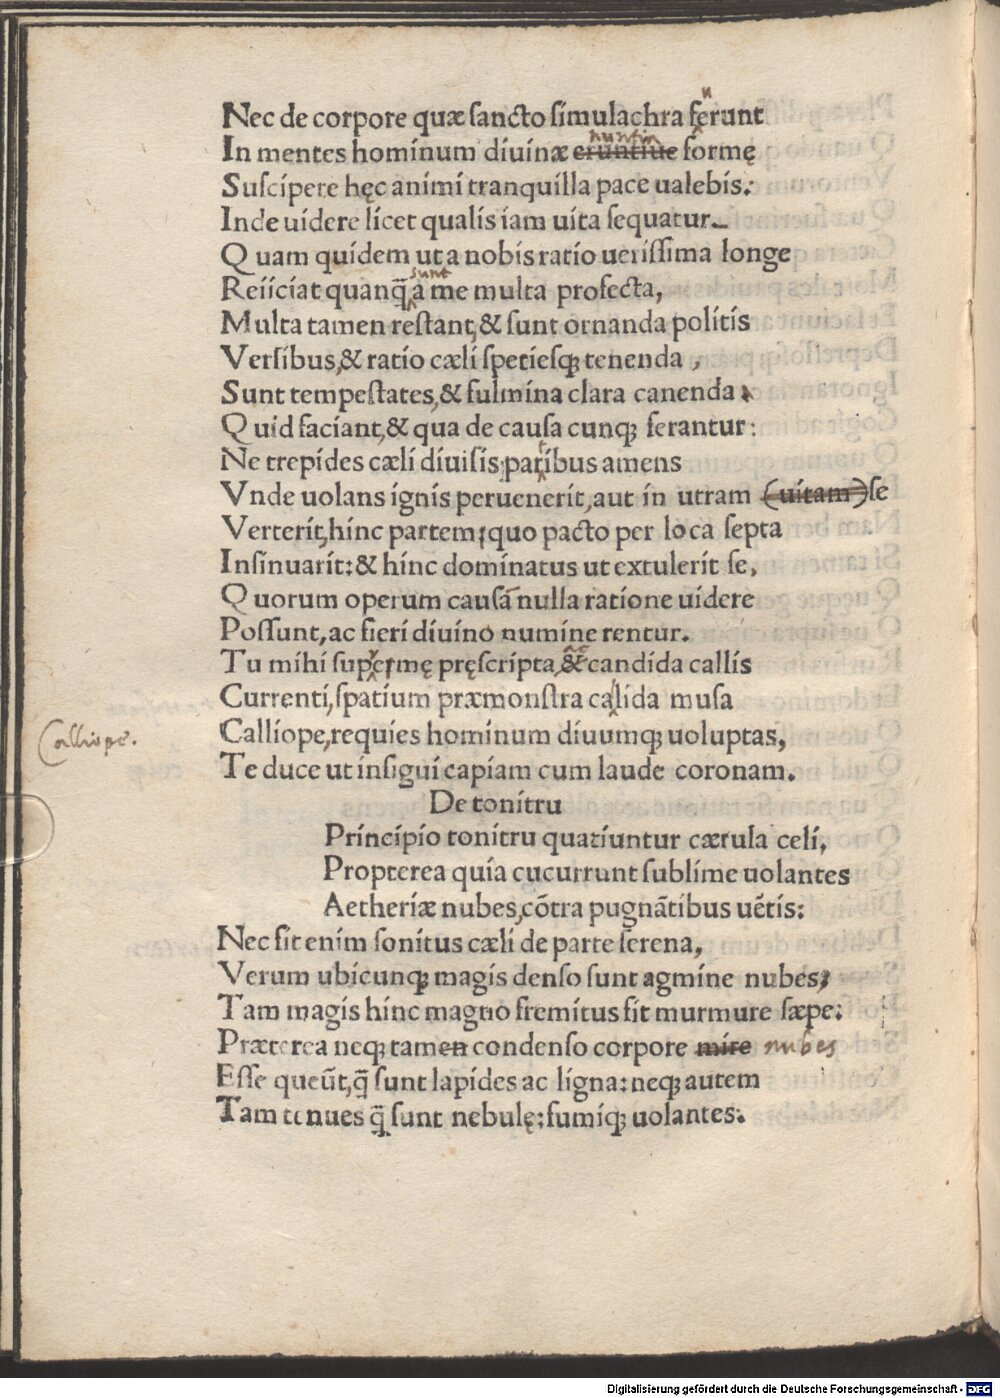 Nec de corpore quæ sancto simulachra ferunt
u
In mentes hominum diuinæ eruntiue formę
nuntia
Suscipere hęc animi tranquilla pace ualebis.
Inde uidere licet qualis iam uita sequatur.
Quam quidem ut a nobis ratio uerissima longe
Reiiciat quanq̄ a me multa profecta,
sunt
Multa tamen restant, & sunt ornanda politis
Versibus, & ratio cæli spetiesq; tenenda,
Sunt tempestates, & fulmina clara canenda.
Quid faciant, & qua de causa cunq; ferantur:
Ne trepides cæli diuisis patibus amens
Vnde uolans ignis peruenerit, aut in utram (uitam) se
Verterit, hinc partem; quo pacto per loca septa
Insinuarit: & hinc dominatus ut extulerit se,
Quorum operum causā nulla ratione uidere
Possunt, ac fieri diuino numine rentur.
Tu mihi supremę pręscripta, & candida callis
Currenti, spatium præmonstra calida musa
Calliope, requies hominum diuumq; uoluptas,
Calliope.
Te duce ut insigui capiam cum laude coronam.
De tonitru
Principio tonitru quatiuntur cærula celi,
Propterea quia cucurrunt sublime uolantes
Aetheriæ nubes, cōtra pugnātibus uētis:
Nec fit enim sonitus cæli de parte serena,
Verum ubicunq; magis denso sunt agmine nubes;
Tam magis hinc magno fremitus fit murmure sæpe:
Præterea neq; tamen condenso corpore mire nubes
Esse queūt, q̄ sunt lapides ac ligna: neq; autem
Tam tenues q̄ sunt nebulę: fumiq; uolantes.
Digitalisierung gefördert durch die Deutsche Forschungsgemeinschaft - DFG